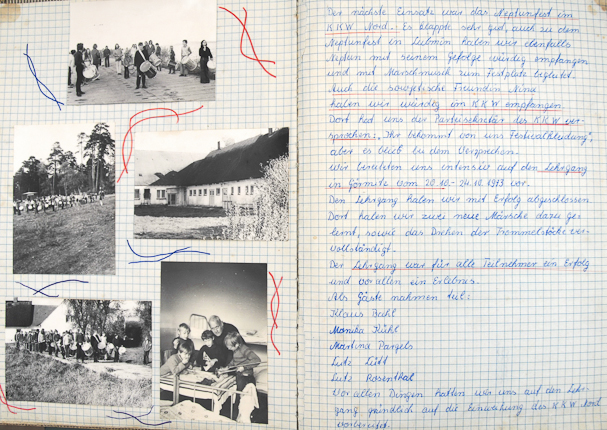 Der nächste Einsatz war das Neptunfest im
KKW Nord. Es klappte sehr gut, auch zu dem
Neptunfest in Lubmin haben wir ebenfalls
Neptun mit seinem Gefolge würdig empfangen
und mit Marschmusik zum Festplatz begleitet.
Auch die sowjetische Freundin Nina
haben wir würdig im KKW empfangen.
Dort hat uns der Parteisekretär des KKW ver-
sprochen: "Ihr bekommt von uns Festivalkleidung",
aber es blieb bei dem Versprechen.
Wir bereiteten uns intensiv auf den Lehrgang
in Görmitz vom 20.10.-24.10.1973 vor.
Den Lehrgang haben wir mit Erfolg abgeschlossen.
Dort haben wir zwei neue Märsche dazu ge-
lernt, sowie das Drehen der Trommelstöcke ver-
vollständigt.
Der Lehrgang war für alle Teilnehmer ein Erfolg
und vor allen ein Erlebnis.
Als Gäste nahmen teil:
Klaus
Monika Kühl
Martina Pargels
Lutz Lütt
Lutz Rosenthal
Vor allen Dingen hatten wir uns auf den Lehr-
gang gründlich auf die Einweihung des KKW Nord
vorbereitet.